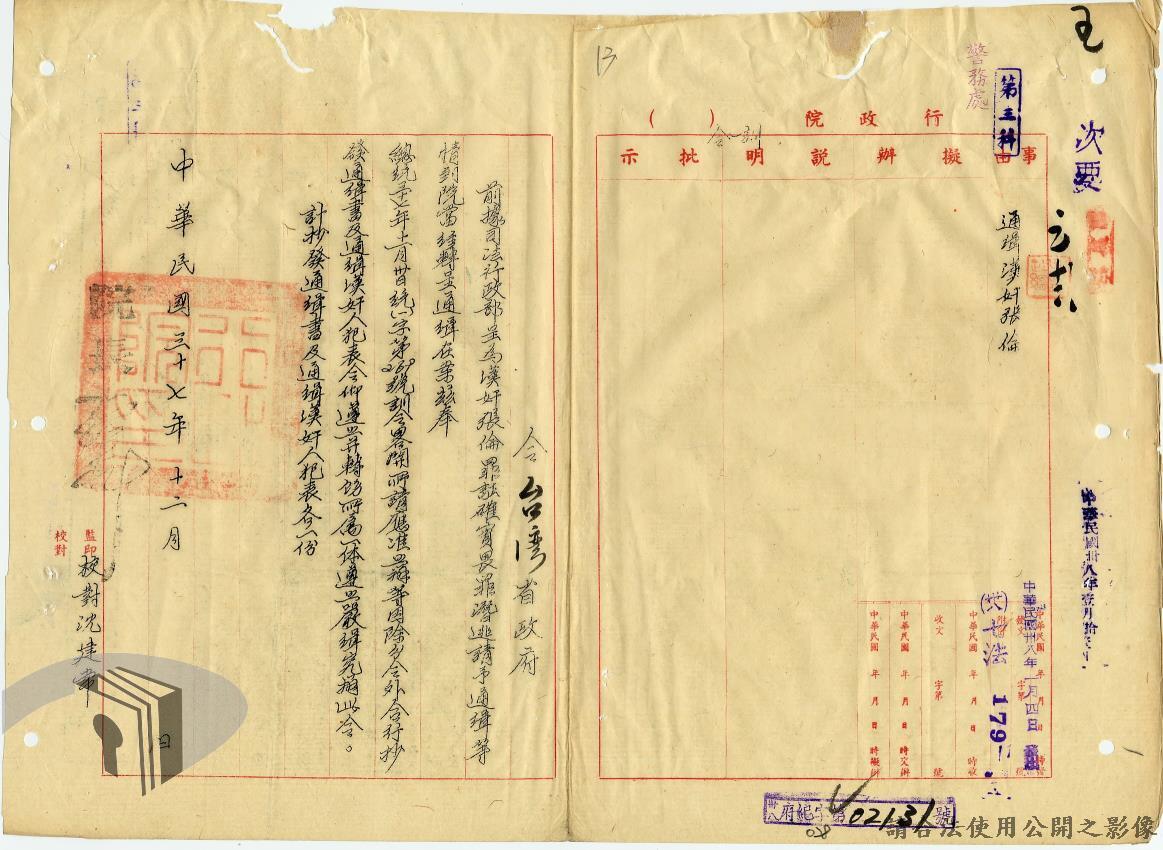 玉
次要
警務處
第三科
13
行政院（　）
事由擬辦說明批示
通緝漢奸張倫
中華民國卅八年壹月拾
中華民國卅八年一月四日
(卅)十法 179
中華民國　年　月　日　時收
收文　字第　號
中華民國　年　月　日　時交辦
中華民國　年　月　日　時擬辦
卅八府紀字第02131號
令台灣省政府
前據司法行政部呈為漢奸張倫罪証確實畏罪潛逃請予通緝等
情到院當經轉呈通緝在案茲奉
總統卅七年十一月廿日統(一)字第260號訓令畧開所請應准照辦等因除分令外合行抄
發通緝書及通緝漢奸人犯表令仰遵照并轉飭所屬一体遵照嚴緝究辦此令。
計抄發通緝書及通緝漢奸人犯表各一份
院長
中華民國三十七年十二月　日
監印
校對
校對沈建章
請合法使用公開之影像